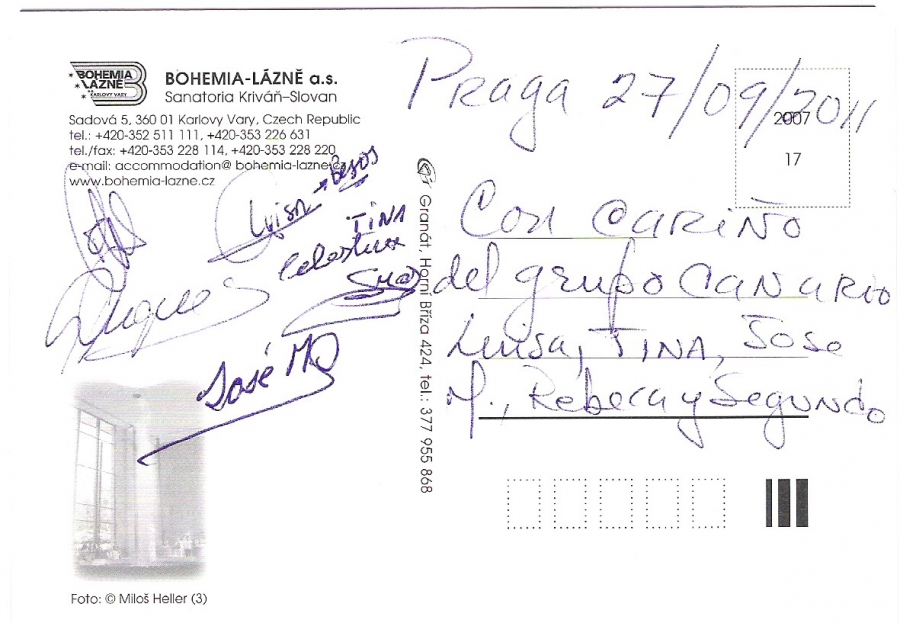 BOHEMIA
LÁZNĚ
KARLOVY VARY
BOHEMIA-LÁZNĚ a.s.
Sanatoria Kriváň-Slovan
Sadová 5, 360 01 Karlovy Vary, Czech Republic
tel.: +420-352 511 111, +420-353 226 631
tel./fax: +420-353 228 114, +420-353 228 220
e-mail: accommodation@ bohemia-lazne.cz
www.bohemia-lazne.cz
Luisa → Besos
TINA
José M
Foto: © Miloš Heller (3)
Granát, Horní Bříza 424, tel.: 377 955 868
Praga 27/09/2011
2007
17
Con CARIÑO
del grupo CANARIO
Luisa, TINA, Jose
M., Rebeca y Segundo